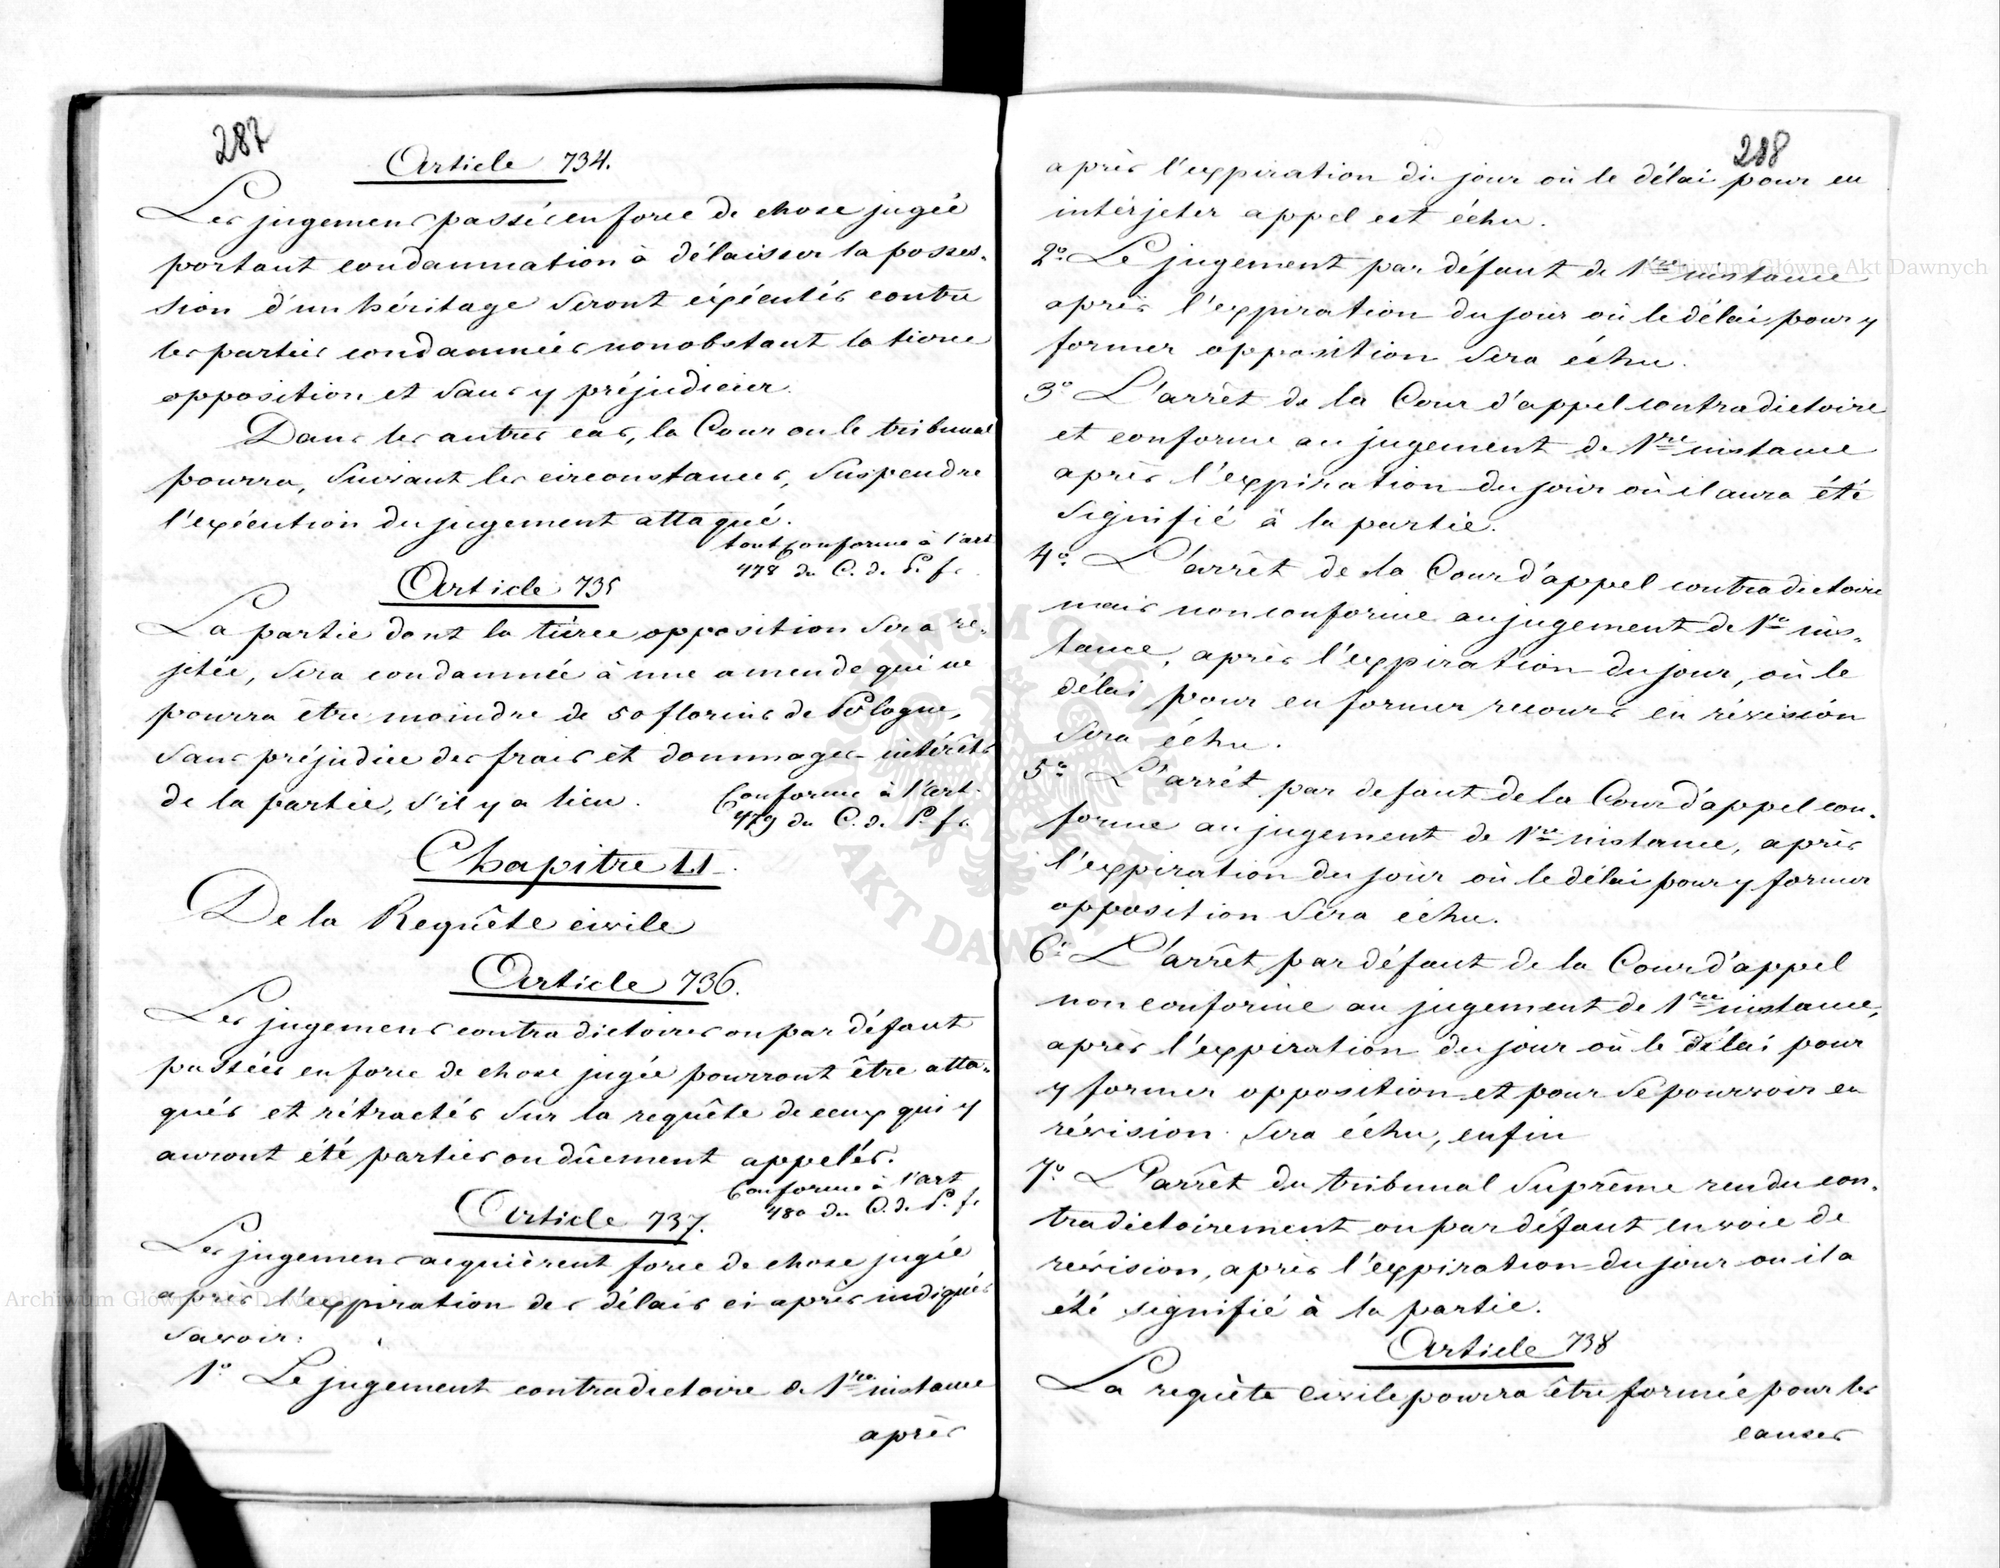 287
Article 734.
Les jugemens passés en force de chose jugée
portant condamnation à délaisser la posses-
sion d'un héritage seront éxécutés contre
les parties condamnées nonobstant la tierce
opposition et sans y préjudicier.
Dans les autres cas, la Cour ou le tribunal
pourra, suivant les circonstances, suspendre
l'exécution du jugement attaqué.
tout conforme à l'art
478 du C. d. P. fr.
Article 735
La partie dont la tierce opposition sera re-
jetée, sera condamnée à une amende qui ne
pourra être moindre de 50 florins de Pologne,
sans préjudice des frais et dommages-intérêts
de la partie, s'il y a lieu.
Conforme à l'art.
479 du C. d. P. fr.
Chapitre II.
De la Requête civile
Article 736.
Les jugemens contradictoires ou par défaut
passées en force de chose jugée pourront être atta-
qués et rétractés sur la requête de ceux qui y
auront été parties ou dûement appelés.
Conforme à l'art
480 du C. d. P. fr.
Article 737.
Les jugemens acquièrent force de chose jugée
après l'expiration des délais ci après indiqués
savoir:
1° Le jugement contradictoire de 1re instance
après
288
après l'expiration du jour où le délai pour en
intérjeter appel est échu.
2° Le jugement par défaut de 1re instance
après l'expiration du jour où le délai pour y
former opposition sera échu.
3° L'arrêt de la Cour d'appel contradictoire
et conforme au jugement de 1re instance
après l'expiration du jour où il aura été
signifié à la partie.
4° L'arrêt de la Cour d'appel contradictoire
mais non conforme au jugement de 1re ins-
tance, après l'expiration du jour, où le
délai pour en former recours en révision
sera échu.
5° L'arrêt par defaut de la Cour d'appel con-
forme au jugement de 1re instance, après
l'expiration du jour où le délai pour y former
opposition sera échu.
6° L'arrêt par défaut de la Cour d'appel
non conforme au jugement de 1re instance,
après l'expiration du jour où le délai pour
y former opposition et pour se pourvoir en
révision sera échu, enfin
7° L'arrêt du tribunal Suprême rendu con-
tradictoirement ou par défaut en voie de
révision, après l'expiration du jour où il a
été signifié à la partie.
Article 738
La requête civile pourra être formée pour les
causes
Archiwum Główne Akt Dawnych
Archiwum Główne Akt Dawnych
ARCHIWUM GŁÓWNE
AKT DAWNYCH